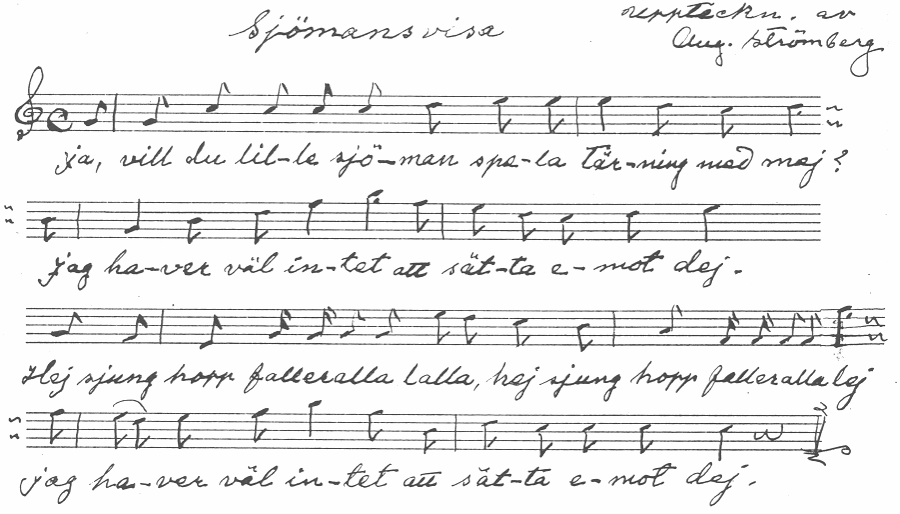 Sjömansvisa
uppteckn. av
Aug. Strömberg
ja, vill du lil-le sjö-man spe-la tär-ning med mej?
jag ha-ver väl in-tet att sät-ta e-mot dej.
Hej sjung hopp falleralla lalla, hej sjung hopp falleralla lej
jag ha-ver väl in-tet att sät-ta e-mot dej.